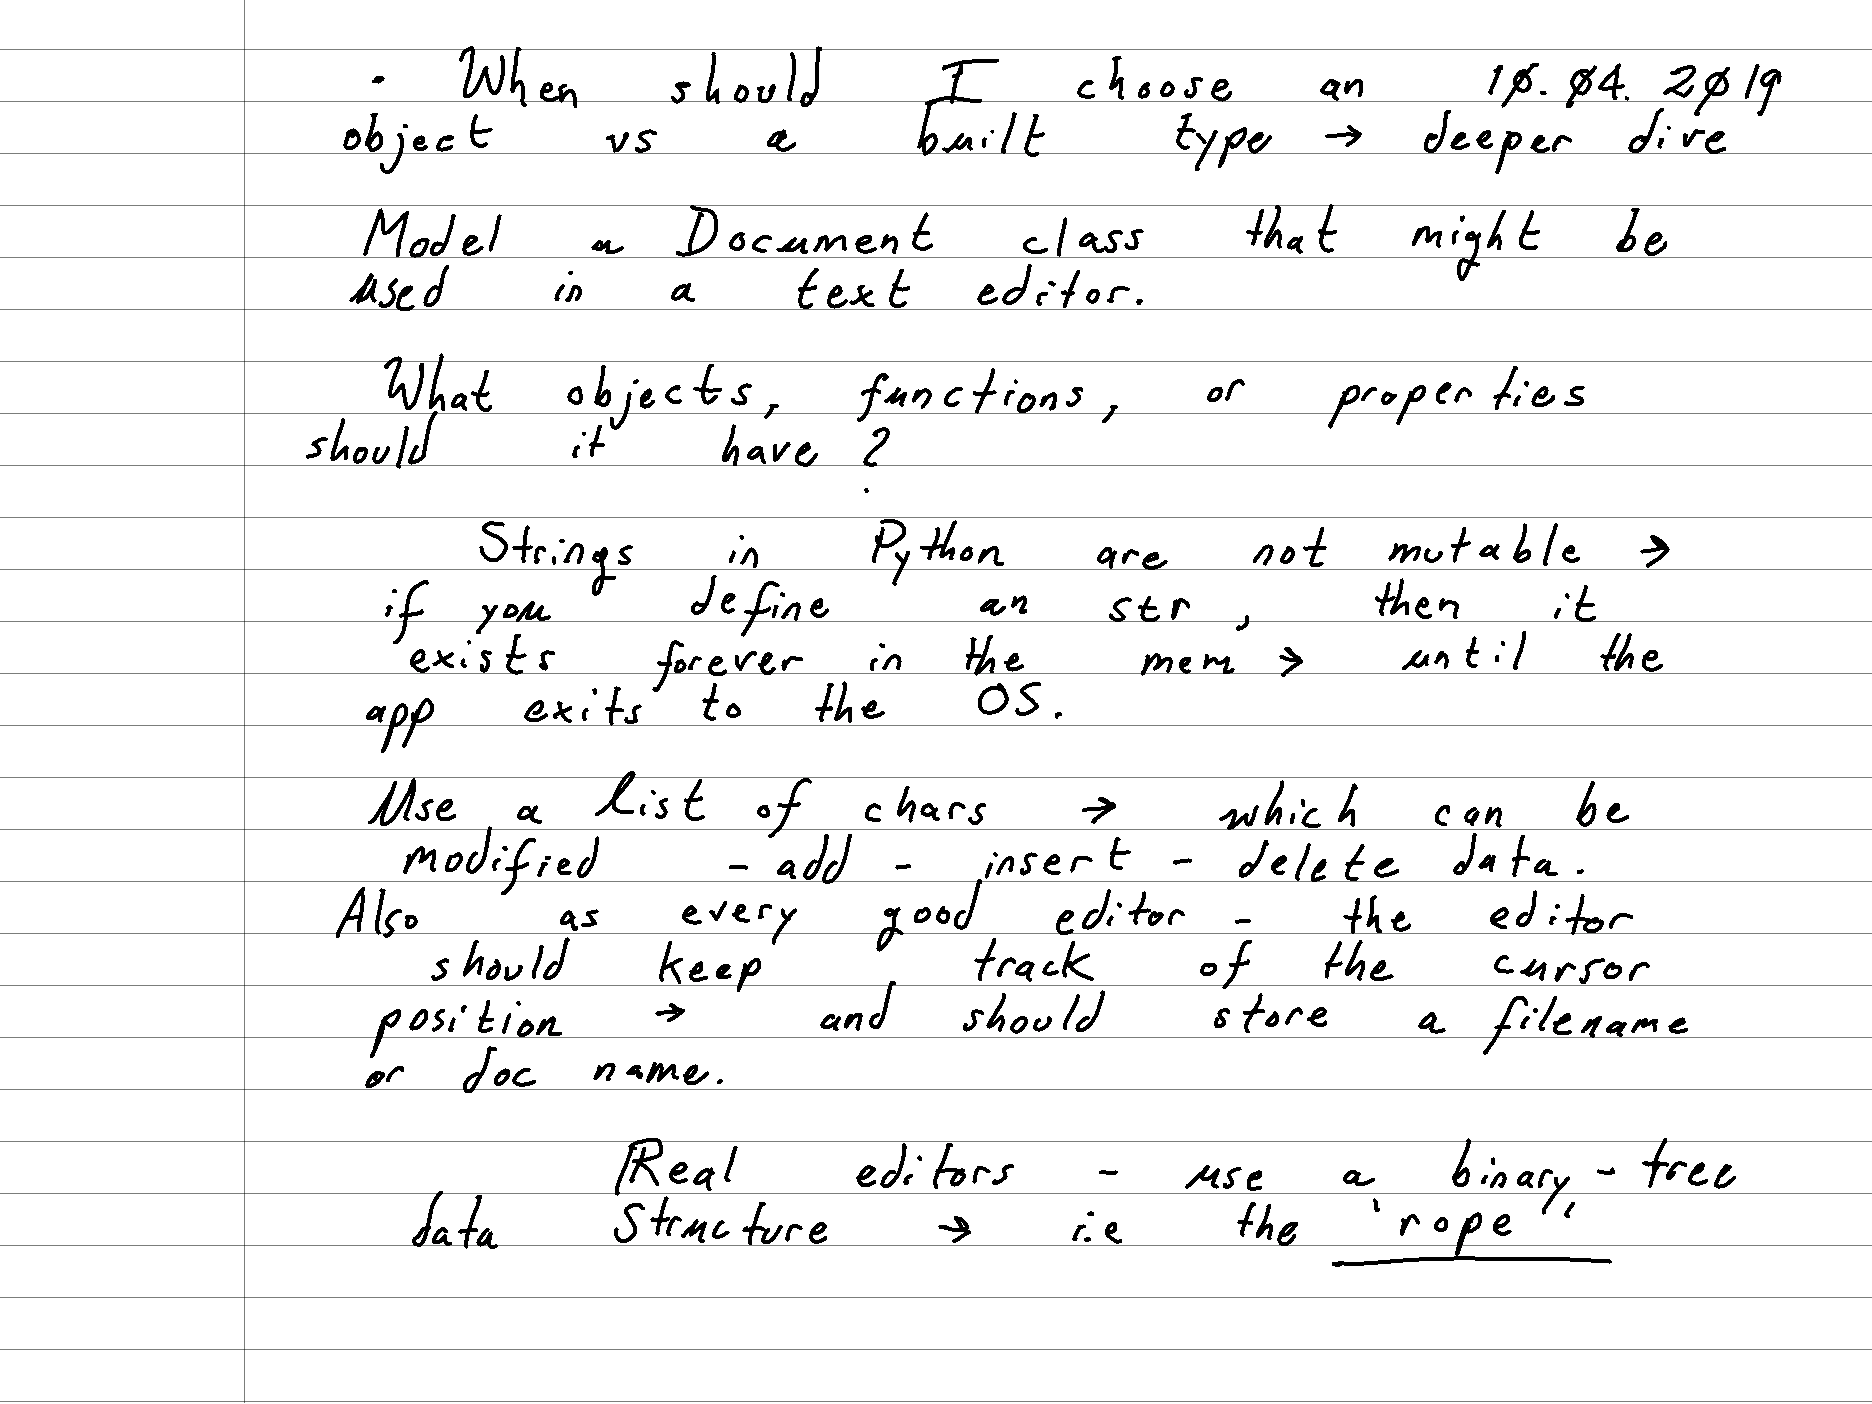 • When should I choose an 10.04.2019
object vs a built type → deeper dive
Model a Document class that might be
used in a text editor.
What objects, functions, or properties
should it have?
Strings in Python are not mutable →
if you define an str, then it
exists forever in the mem → until the
app exits to the OS.
Use a list of chars → which can be
modified - add - insert - delete data.
Also as every good editor - the editor
should keep track of the cursor
position → and should store a filename
or doc name.
Real editors - use a binary-tree
data structure → i.e the 'rope"